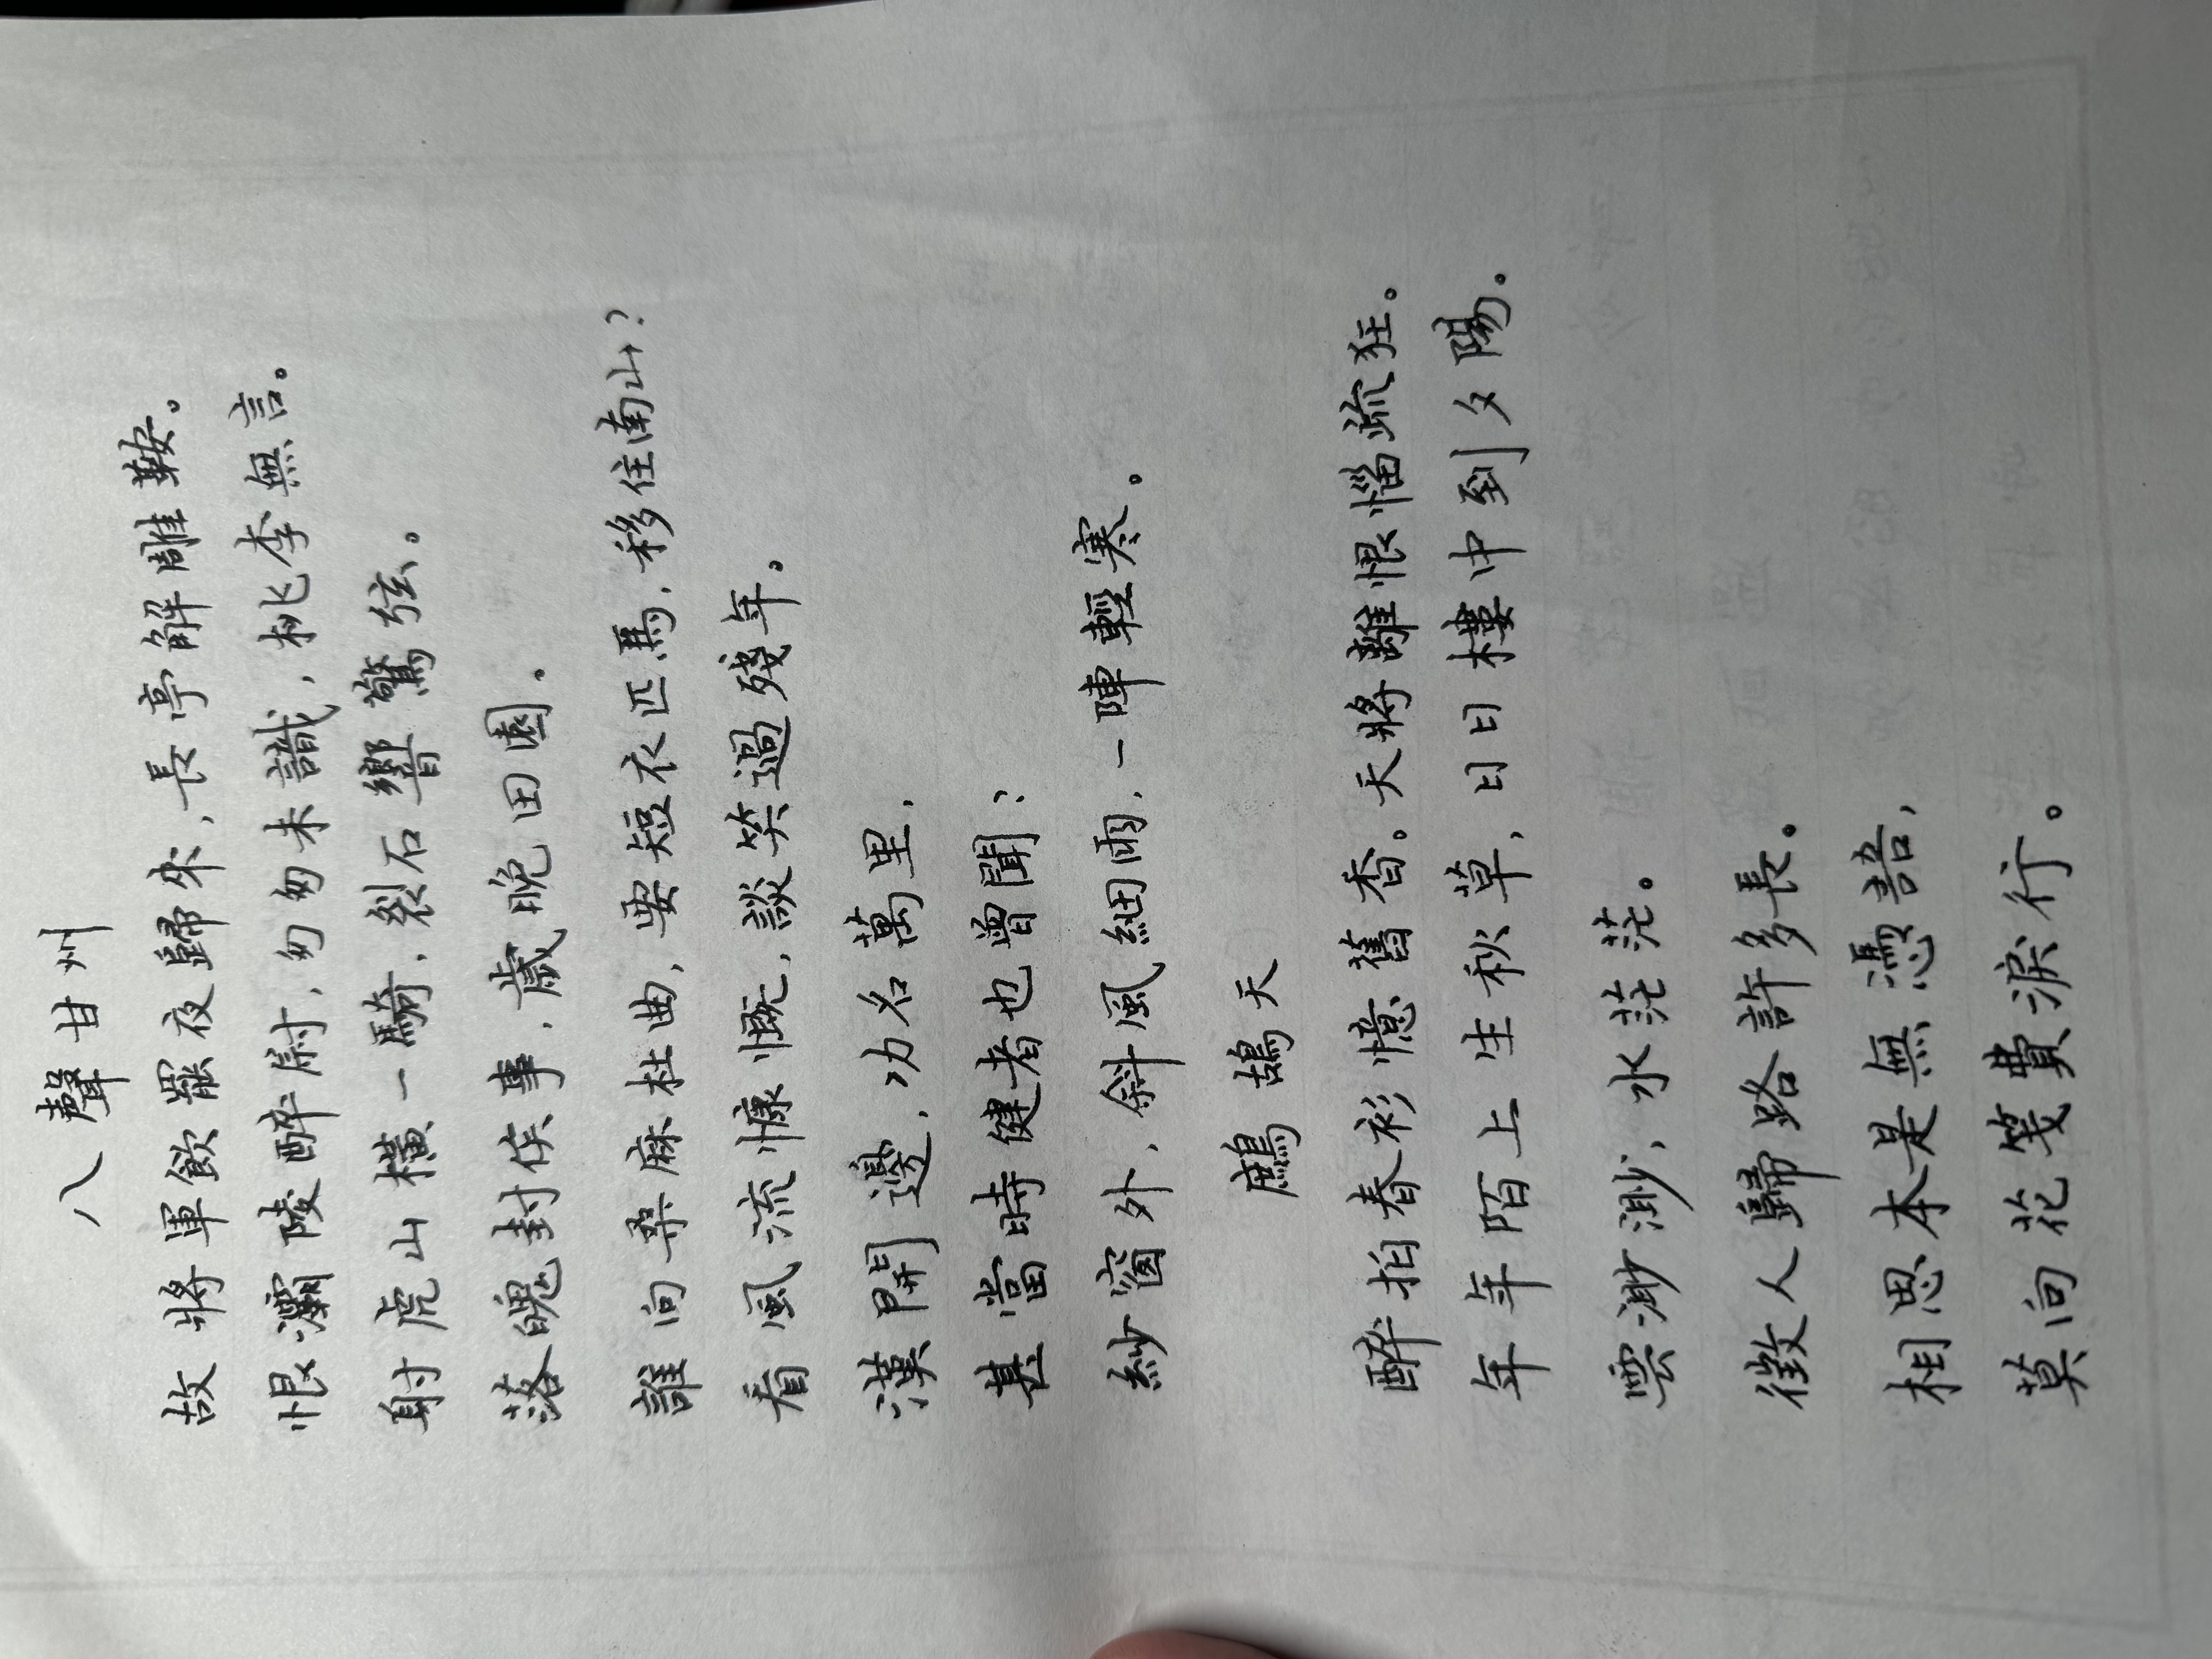 八聲甘州
故將軍飲罷夜歸來,長亭解雕鞍。
恨灞陵醉尉,匆匆未識,桃李無言。
射虎山橫一騎,裂石響驚弦。
落魄封侯事,歲晚田園。
誰向桑麻杜曲,要短衣匹馬,移住南山?
看風流慷慨,談笑過殘年。
漢開邊,功名萬里,
甚當時健者也曾閒?
紗窗外,斜風細雨,一陣輕寒。
鷓鴣天
醉拍春衫憶舊香。天將離恨惱疏狂。
年年陌上生秋草,日日樓中到夕陽。
雲渺渺,水茫茫。
徵人歸路許多長。
相思本是無憑語,
莫向花箋費淚行。